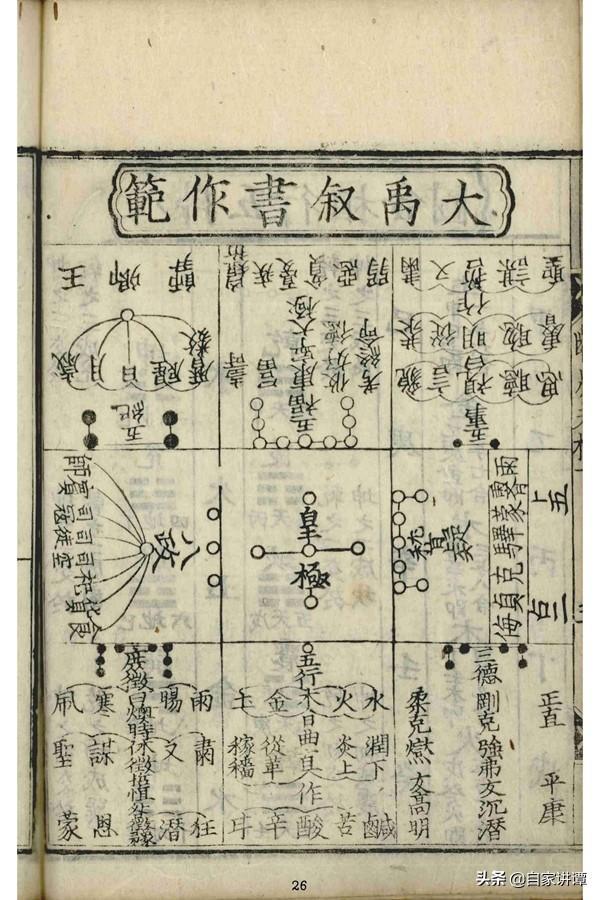 大禹叙書作範
聖謀哲乂肅
作
睿聰明從恭
曰
思聽視言貌
五事
弱惡貧憂疾
五福
壽
富
康寧
攸好德
考終命
師卿王
曆數
日月歲
五紀
卜五
占二
雨霽蒙驛克貞悔
稽疑
皇極
八政
食貨祀司司司賓師
空徒寇
正直 平康
三德剛克強弗友沉潛
柔克燮友高明
水潤下鹹
火炎上苦
五行木曰曲直作酸
金從革辛
土稼穡甘
雨肅狂
暘乂僭
庶徵曰燠
寒謀
風聖蒙
26
头条 @自家讲谭